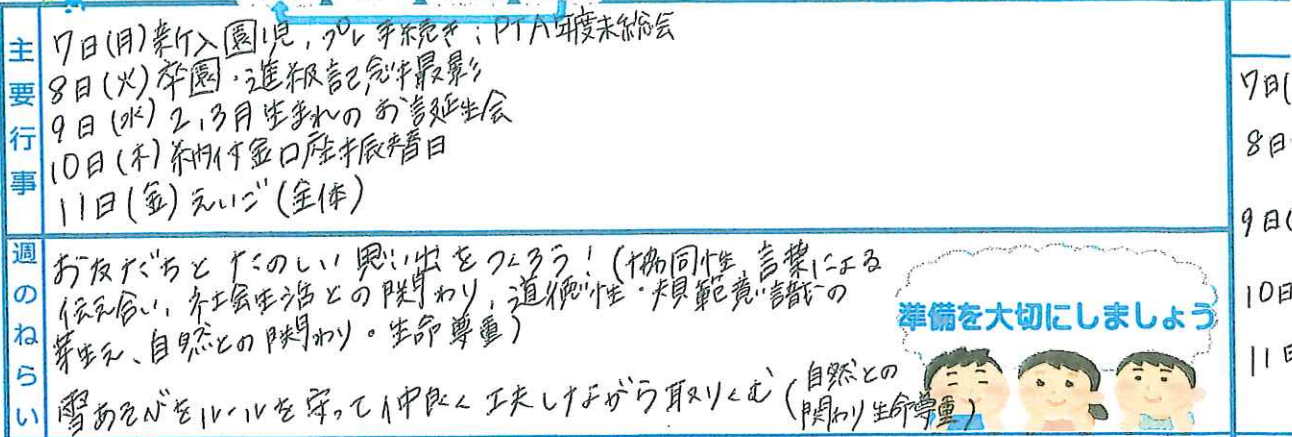 主要行事
7日(月)新入園児,プレ手続き;PTA年度末総会
8日(火)卒園・進級記念撮影
9日(水)2,3月生まれのお誕生会
10日(木)納付金口座振替日
11日(金)えいご(全体)
週のねらい
お友だちとたのしい思い出をつくろう!(協同性,言葉による
伝え合い,社会生活との関わり,道徳性・規範意識の
芽生え、自然との関わり。生命尊重)
雪あそびをルールを守って仲良く工夫しながら取りくむ(自然との
関わり生命尊重)
準備を大切にしましょう
7日(
8日
9日(
10日
11日